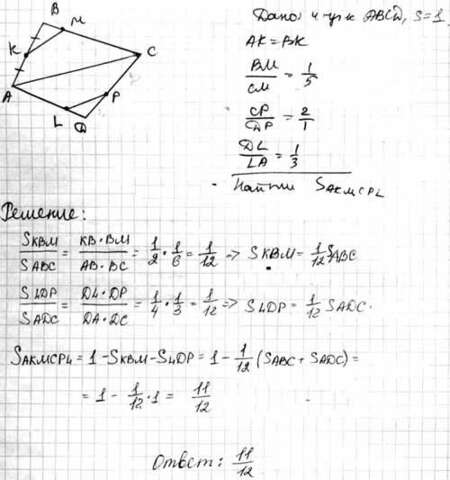 B
M
K
C
A
P
L
D
Дано: 4-уг-к ABCD, S=1
AK=BK
BM/CM = 1/5
CP/DP = 2/1
DL/LA = 1/3
Найти SAKMCPL
Решение:
SKBM/SABC = KB·BM/AB·BC = 1/2 · 1/6 = 1/12 => SKBM = 1/12 SABC
SLDP/SADC = DL·DP/DA·DC = 1/4 · 1/3 = 1/12 => SLDP = 1/12 SADC.
SAKMCPL = 1 - SKBM - SLDP = 1 - 1/12 (SABC + SADC) =
= 1 - 1/12 · 1 = 11/12
Ответ: 11/12